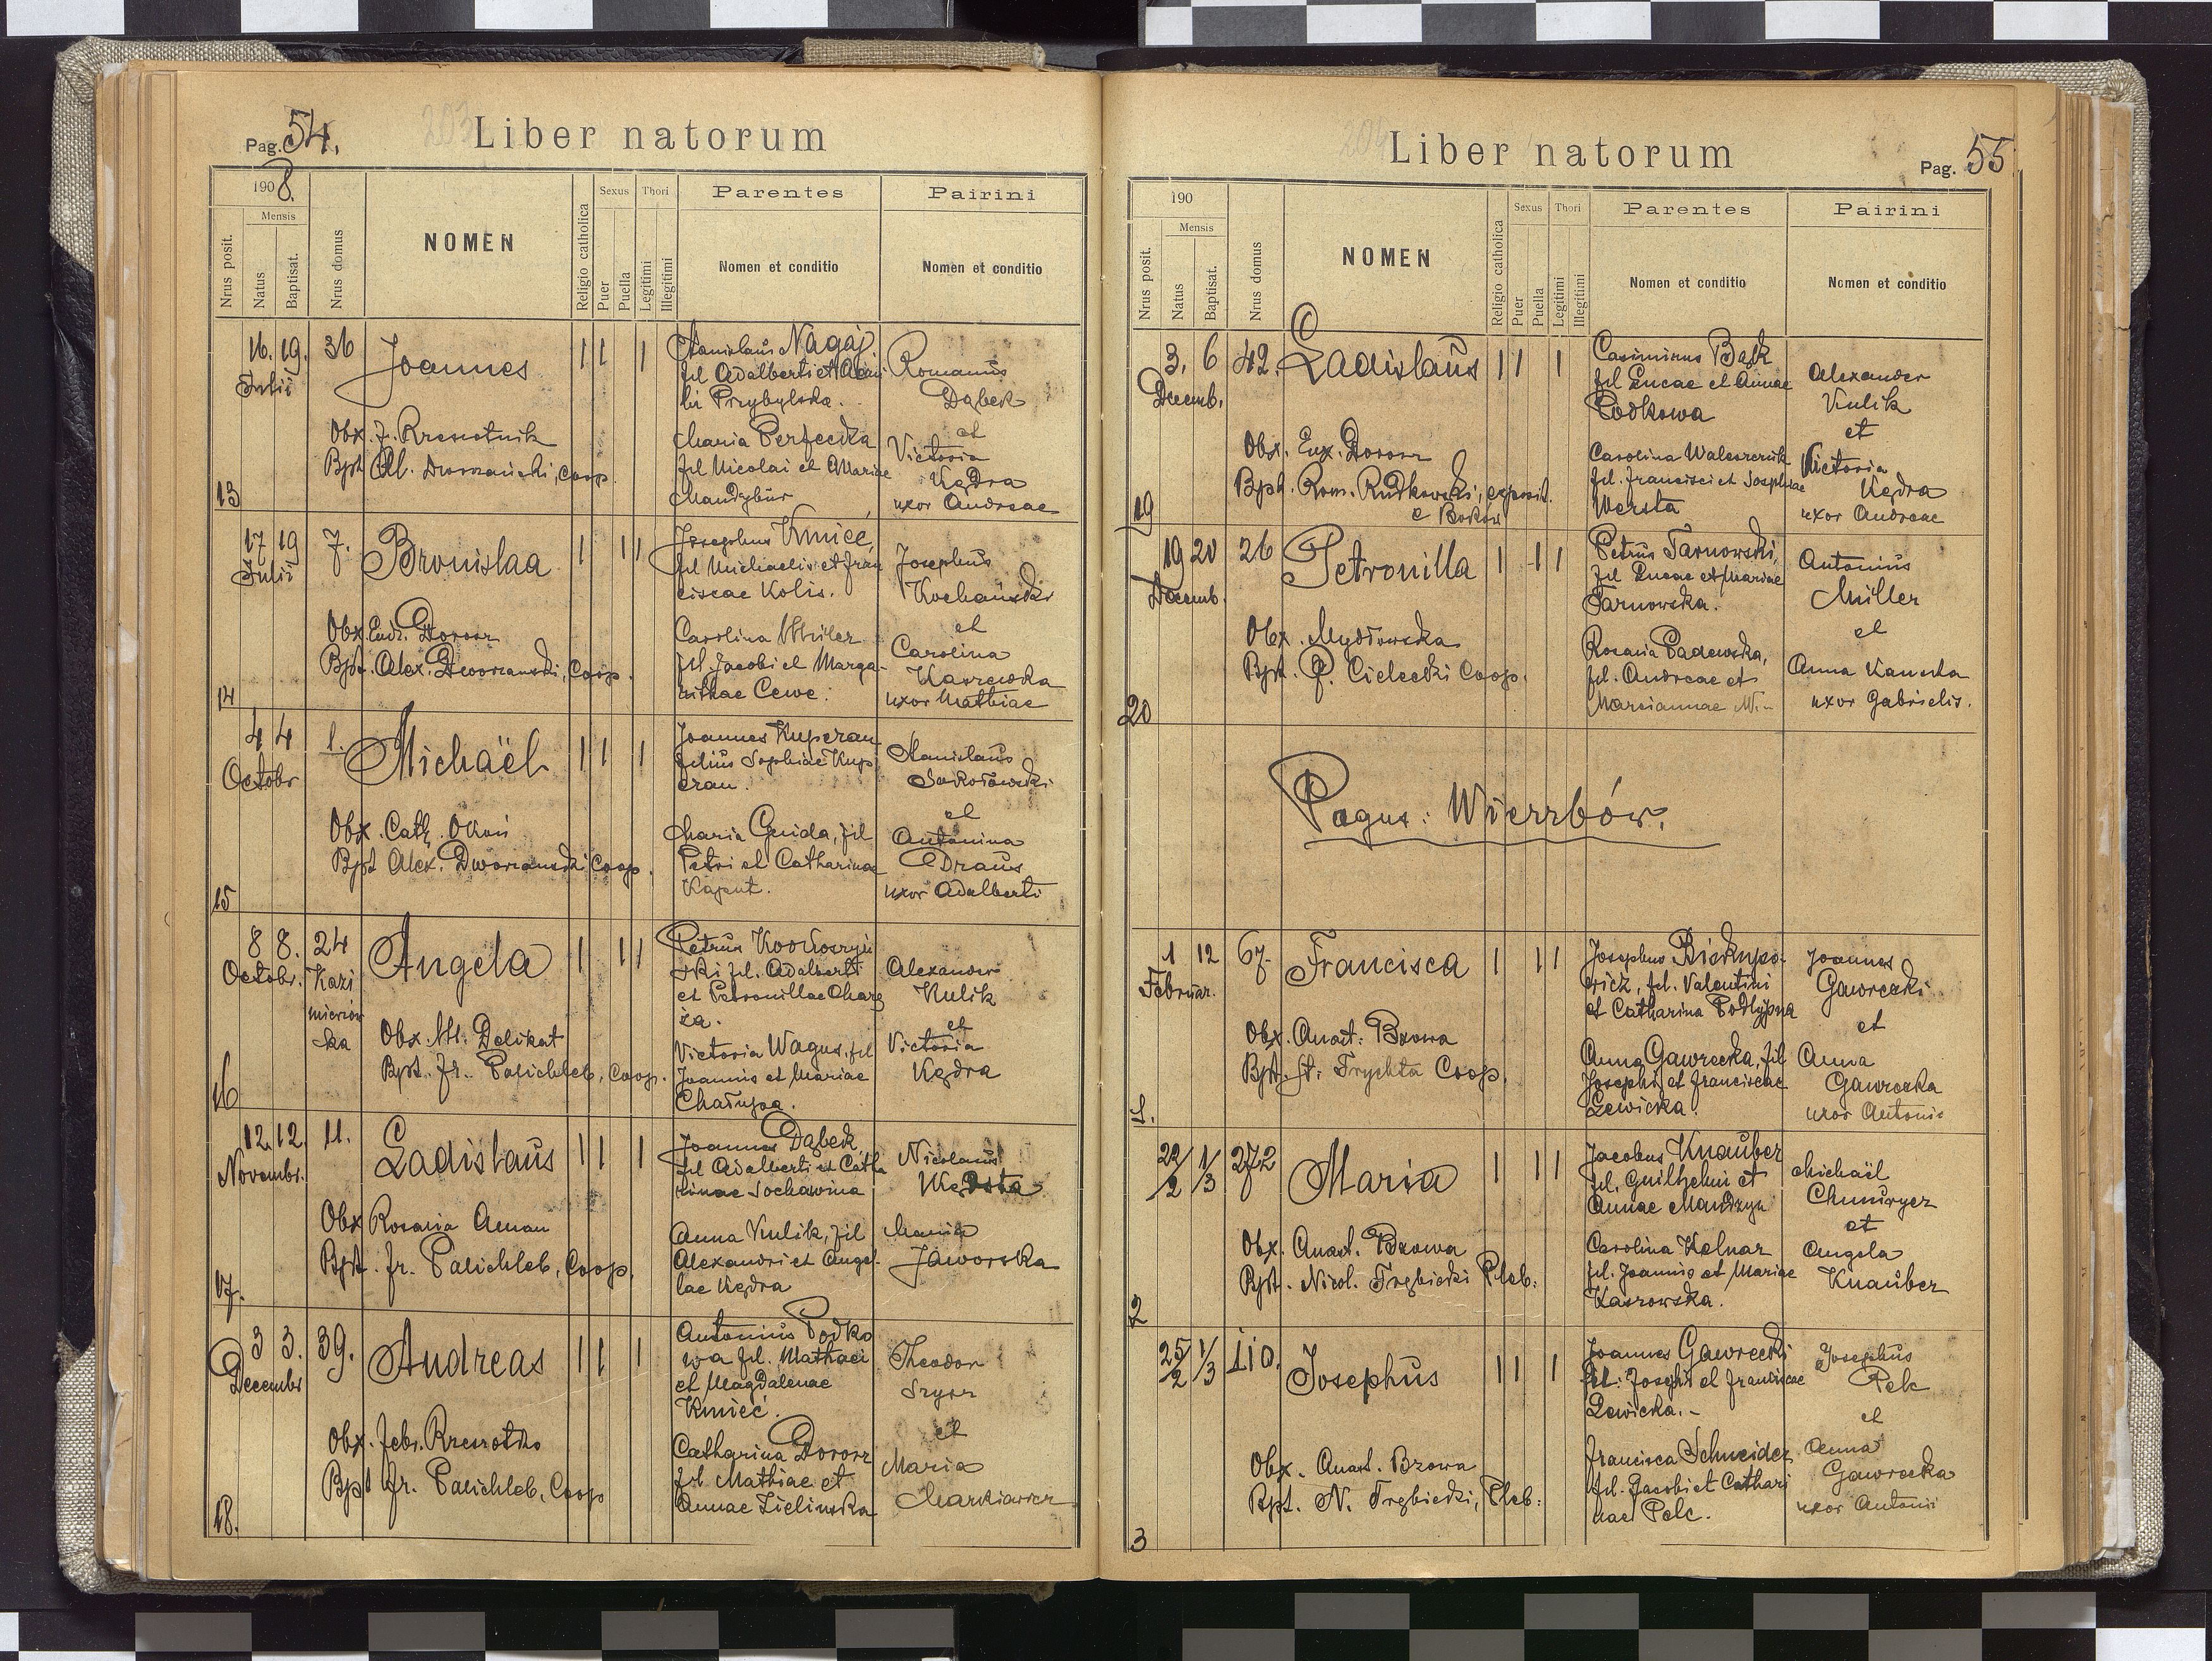 Pag. 54.
Liber natorum
1908.
Mensis
Nrus posit.
Natus
Baptisat.
Nrus domus
NOMEN
Religio catholica
Sexus
Puer
Puella
Thori
Legitimi
Illegitimi
Parentes
Nomen et conditio
Pairini
Nomen et conditio
13
16. 19.
Julii
36
Joannes
Obx. J.
Bpt. Al. Dworzański, Coop.
Stanislaus Nagaj
fil Adalberti et
Przybylska.
Maria Perfecka
fil Nicolai et Mariae
Mandzbur
Romanus
Dąbek
et
Victoria
Kędra
uxor Andreae
14
17 19
Julii
7.
Bronislaa
Obx. Eudx. Dorosz
Bpt. Alex. Dworzanski, Coop.
Josephus Kmieć,
fil Michaelis et Fran
ciscae Kolis.
Carolina Miller
fil. Jacobi et Marga-
rithae Cewe.
Josephus
Kochański
et
Carolina
Kaszewska
uxor Mathiae
15
4 4
Octobr
1.
Michaël
Obx. Cath. Okoń
Bpt Alex. Dworzanski Coop.
Joannes Kuperan
filius Sophiae Kup
eran.
Maria Guida, fil
Petri et Catharinae
Kajput.
Stanislaus
Sokołowski
et
Antonina
Draus
uxor Adalberti
16
8 8.
Octobr.
24
Kazi
mierzów
ska
Angela
Obx. M. Delikat
Bpt. Fr. Palichleb, Coop.
Petrus
ski fil. Adalberti
et Petronillae
Victoria Wagus, fil
Joannis et Mariae
Chałupa.
Alexander
Kulik
et
Victoria
Kędra
17.
12. 12.
Novembr.
11.
Ladislaus
Obx Rosaria Aman
Bpt. Fr. Palichleb, Coop.
Joannes Dąbek,
fil Adalberti et Catha
rinae Sochawina
Anna Kulik, fil
Alexandri et Ange-
lae Kędra
Nicolaus
Maria
Jaworska
18.
3 3.
Decembr
39.
Andreas
Obx. Febr.
Bpt Fr. Palichleb, Coop
Antonius Podko
wa fil. Mathaei
et Magdalenae
Kmieć.
Catharina Dorosz
fil Mathiae et
Annae Zielinska
Theodor
et
Maria
Markiewicz
Liber natorum
Pag. 55
190
Mensis
Nrus posit.
Natus
Baptisat.
Nrus domus
NOMEN
Religio catholica
Sexus
Puer
Puella
Thori
Legitimi
Illegitimi
Parentes
Nomen et conditio
Pairini
Nomen et conditio
19
3. 6
Decemb.
42.
Ladislaus
Obx. Eux. Dorosz
Bpt. Rom. Rudkowski, exposit.
e Boków
Casimirus Bąk
fil Lucae et Annae
Podkowa
Carolina Walaszczuk
fil. Francisci et Josephae
Wersta
Alexander
Kulik
et
Victoria
Kędra
uxor Andreae
20
19 20
Decemb.
26
Petronilla
Obx. Mydłowska
Bpt. P. Cielecki Coop.
Petrus Tarnowski,
fil Lucae et Mariae
Tarnowska.
Rosaria Padewska,
fil. Andreae et
Marciannae N.-
Antonius
Müller
et
Anna
uxor Gabrielis.
Pagus: Wierzbów.
1.
1 12
Februar.
67.
Francisca
Obx. Anast. Bzowa
Bpt. St. Trychta Coop.
Josephus
fil. Valentini
et Catharina
Anna Gawrecka, fil
Josephi et Franciscae
Lewicka.
Joannes
Gawrecki
et
Anna
Gawrecka
uxor Antoni
2
22/2 1/3
272
Maria
Obx. Anast. Bzowa
Bpt. Nicol. Trębicki Pleb.
Jacobus Knauber
fil. Guilhelmi et
Annae Mandzyn
Carolina Kolnar
fil. Joannis et Mariae
Kaszowska.
Michaël
et
Angela
Knauber
3
25/2 1/3
110.
Josephus
Obx. Anast. Bzowa
Bpt. N. Trębicki, Pleb:
Joannes Gawrecki
fil: Josephi et Franciscae
Lewicka.-
Francisca Schneider
fil. Jacobi et Cathari
nae Pelc.
Josephus
Pelc
et
Anna
Gawrecka
uxor Antoni